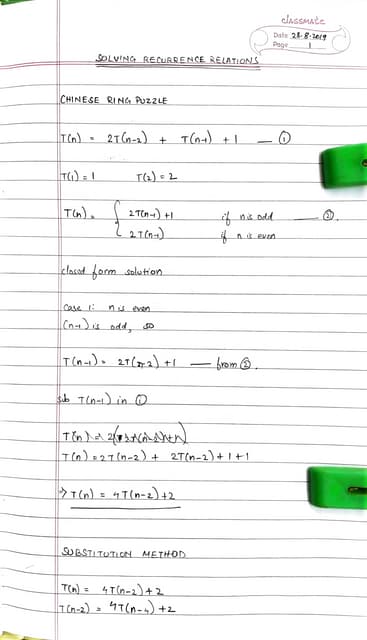 classmate
Date 28-8-2019
Page 1
SOLVING RECURRENCE RELATIONS
CHINESE RING PUZZLE
T(n) = 2T(n-2) + T(n-1) + 1 — ①
T(1) = 1 T(2) = 2
T(n) = { 2T(n-1) +1 if n is odd — ②.
2T(n-1) if n is even
closed form solution
Case 1: n is even
(n-1) is odd, so
T(n-1) = 2T(n-2) +1 — from ②.
sub T(n-1) in ①
T(n) = 2T(n-2) + 2T(n-2) + 1 + 1
⇒ T(n) = 4T(n-2) +2
SUBSTITUTION METHOD
T(n) = 4T(n-2) + 2
T(n-2) = 4T(n-4) +2